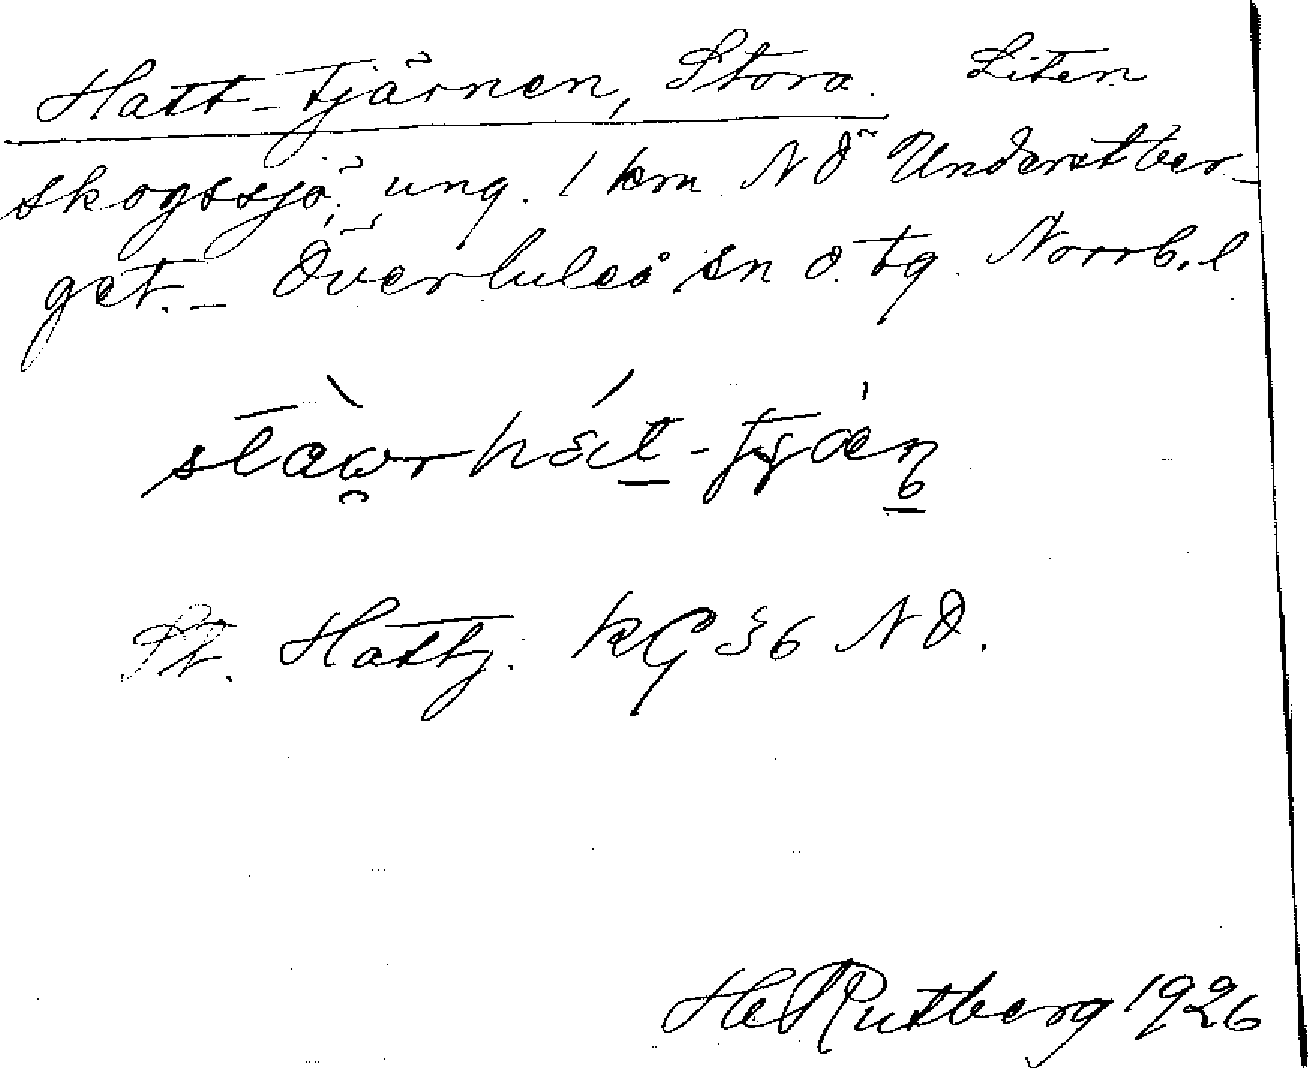 Hatt-tjärnen, Stora. Liten
skogssjö, ung. 1 km NÖ Understber-
get. - Överluleå sn o. tg. Norrb. l
St. Hattj. kG 36 NO.
Rutberg 1926